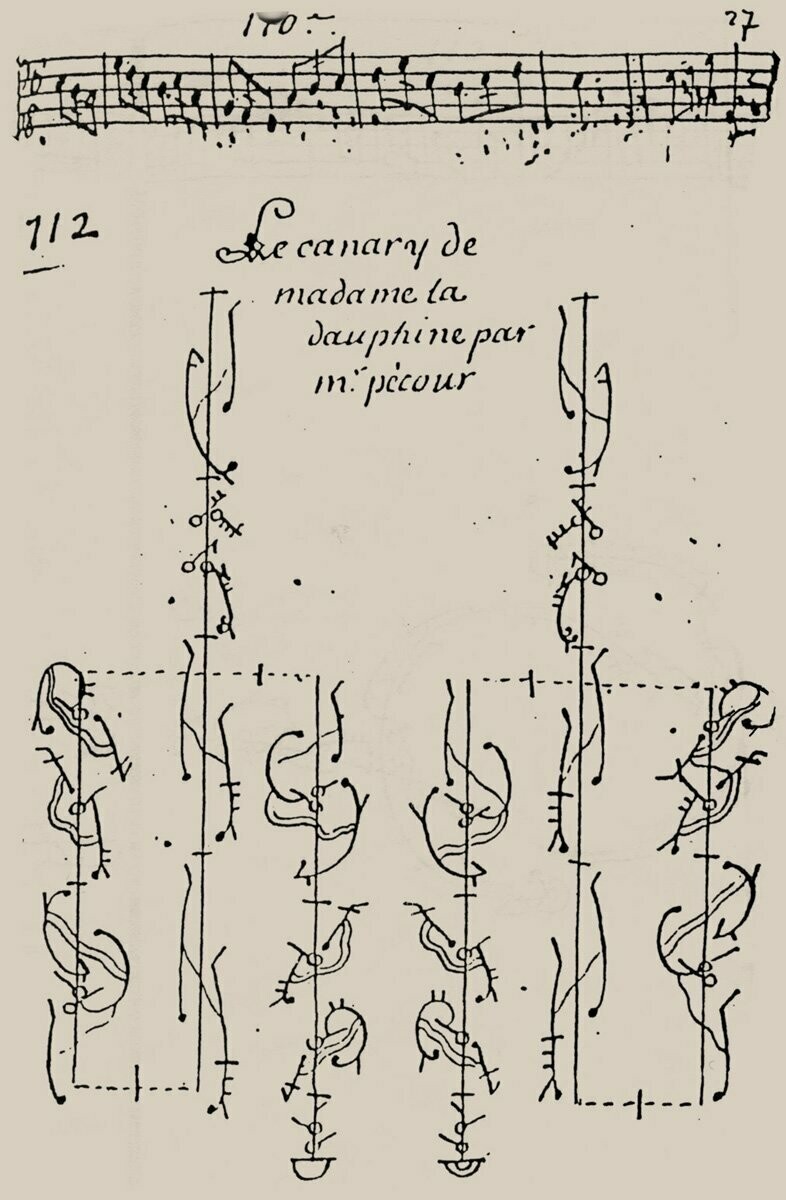 27
112
Le canary de
madame la
dauphine par
mr. pècour